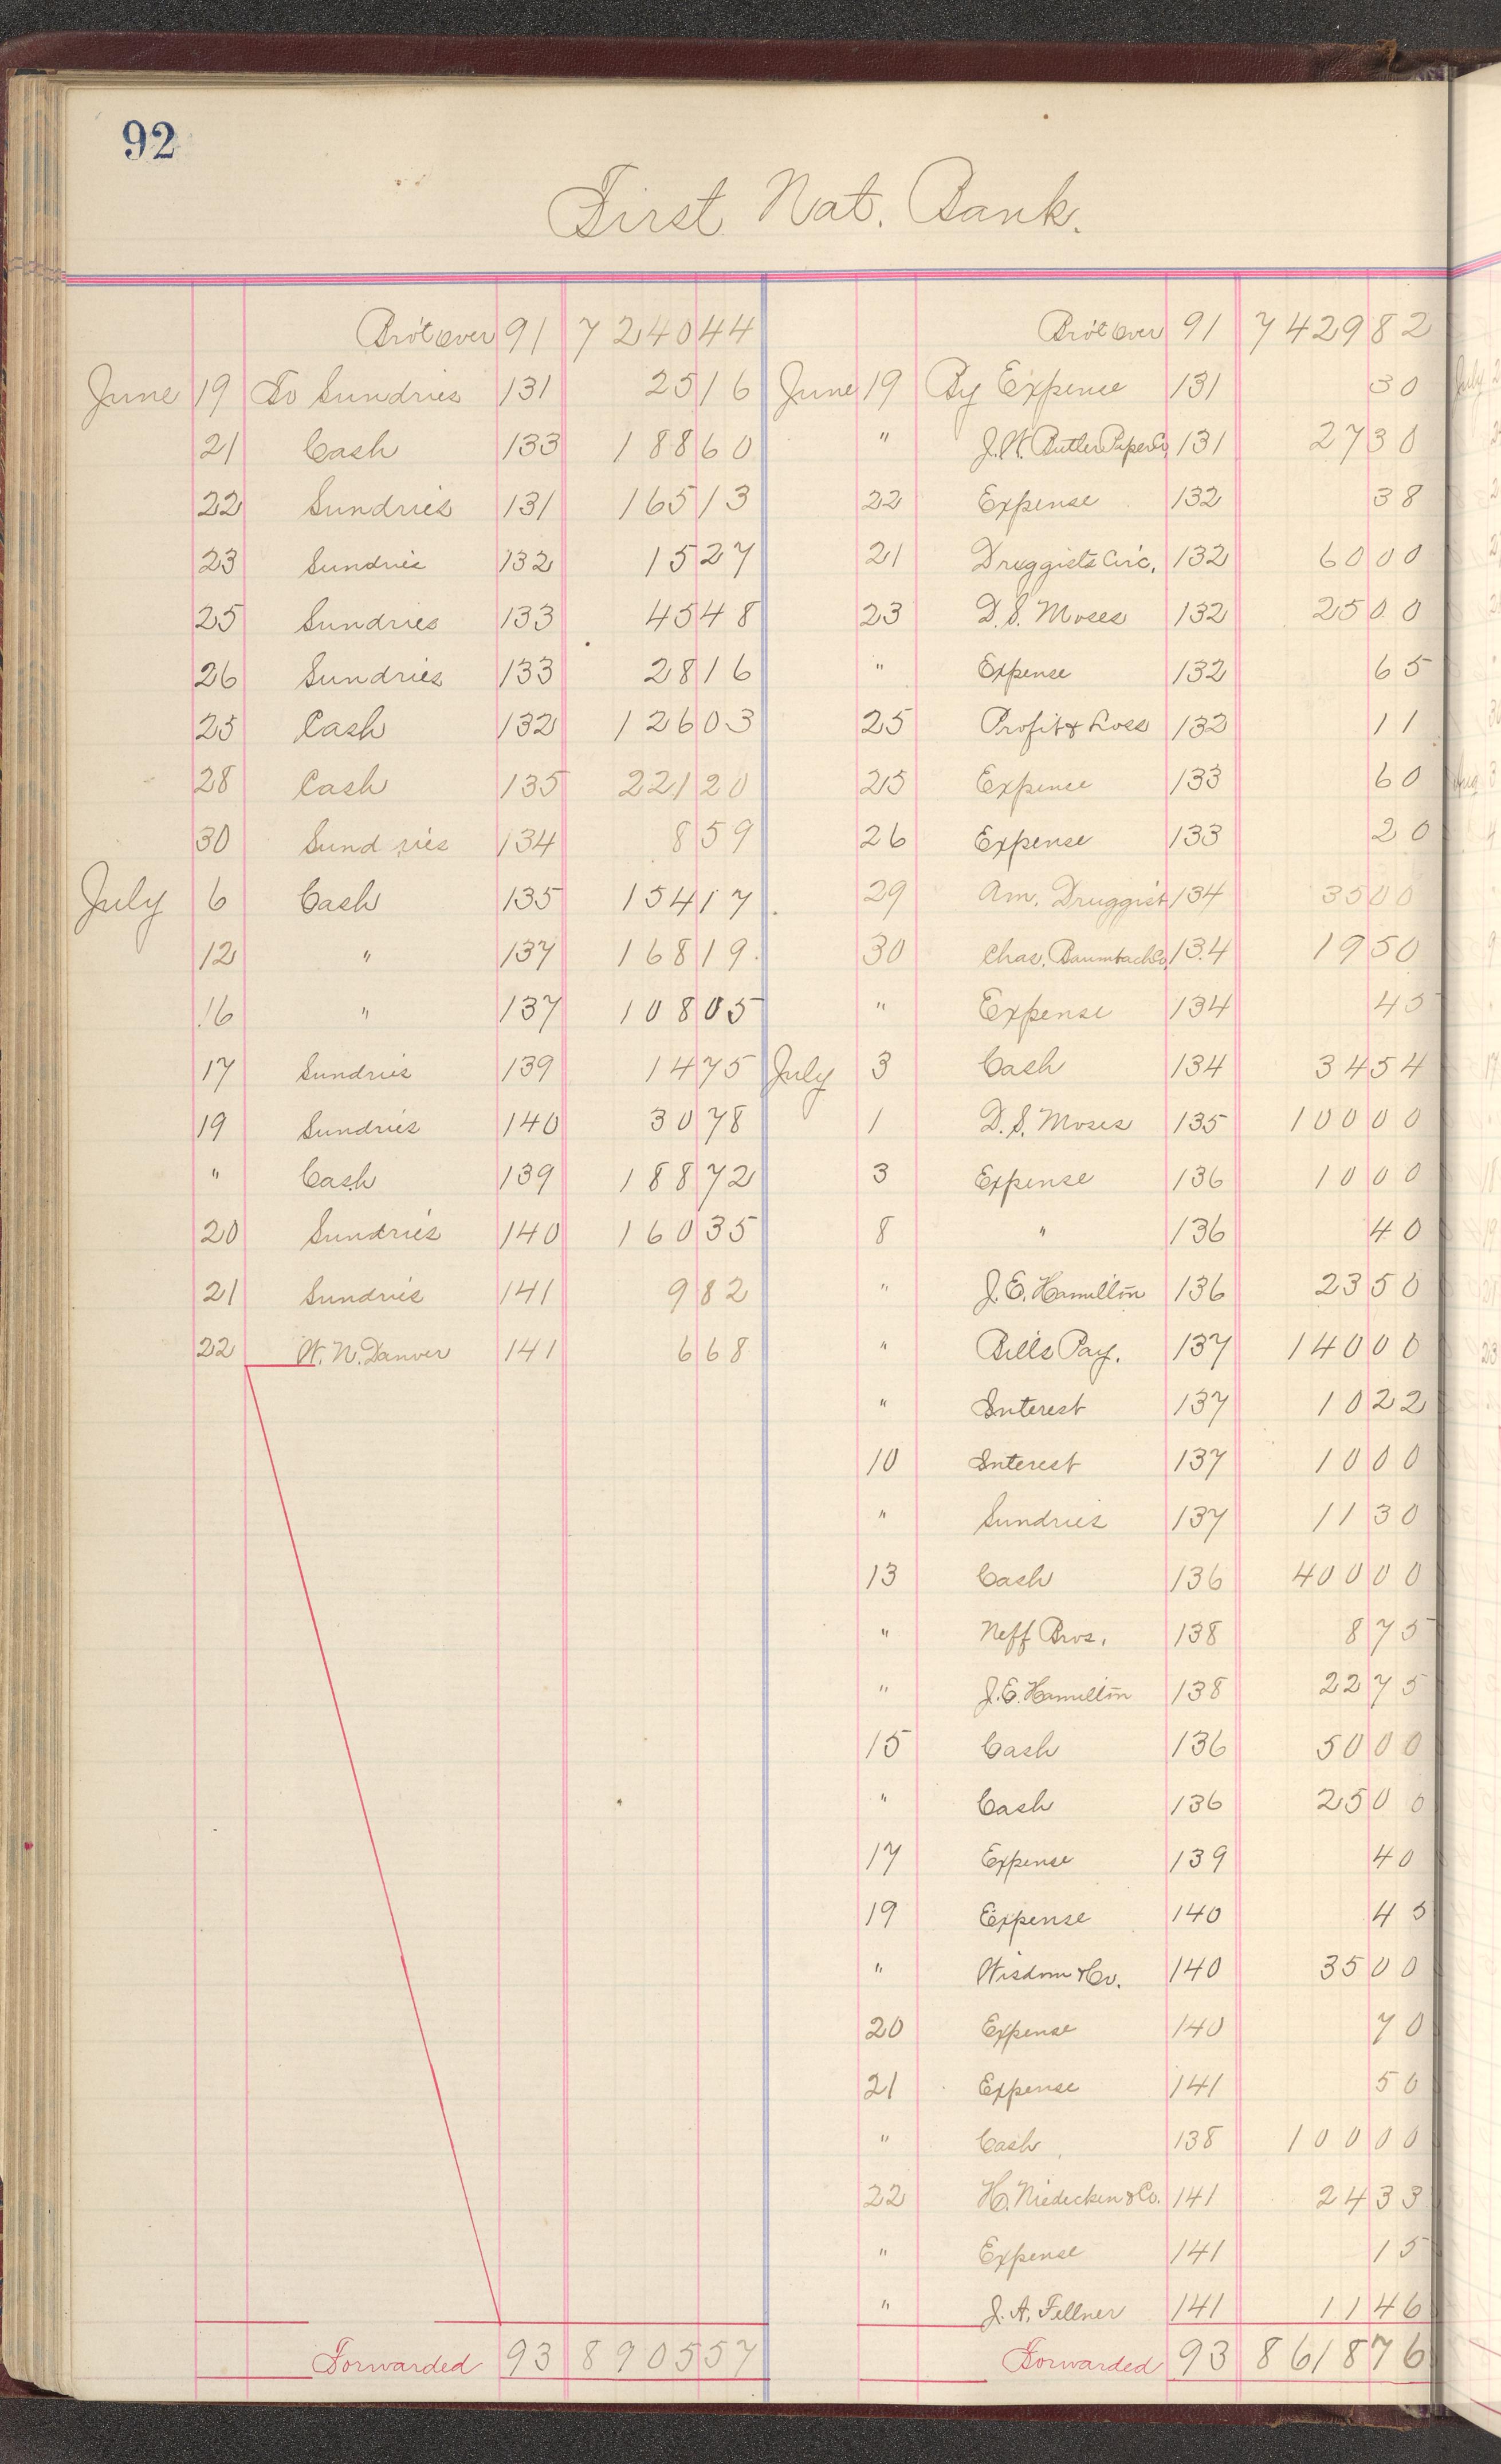 92
First Nat. Bank.
Bro't over 91 7240 44
June 19 To Sundries 131 25 16
21 Cash 133 188 60
22 Sundries 131 165 13
23 Sundrie 132 15 27
25 Sundries 133 45 48
26 Sundries 133 28 16
25 Cash 132 126 03
28 Cash 135 221 20
30 Sundries 134 8 59
July 6 Cash 135 154 17
12 " 137 168 19
16 " 137 108 05
17 Sundries 139 14 75
19 Sundries 140 30 78
" Cash 139 188 72
20 Sundries 140 160 35
21 Sundries 141 9 82
22 W. N. Danver 141 6 68
Forwarded 93 8905 57
Bro't over 91 7429 82
June 19 By Expense 131 30
" J. W. Butler Paper Co 131 27 30
22 Expense 132 38
21 Druggists Circ. 132 60 00
23 D. S. Moses 132 25 00
" Expense 132 65
25 Profit & Loss 132 11
25 Expense 133 60
26 Expense 133 20
29 Am. Druggist 134 35 00
30 Chas. Baumbach Co. 134 19 50
" Expense 134 45
July 3 Cash 134 34 54
1 D. S. Moses 135 100 00
3 Expense 136 10 00
8 " 136 40
" J. E. Hamilton 136 23 50
" Bills Pay. 137 140 00
" Interest 137 10 22
10 Interest 137 10 00
" Sundries 137 11 30
13 Cash 136 400 00
" Neff Bros. 138 8 75
" J. E. Hamilton 138 22 75
15 Cash 136 50 00
" Cash 136 25 00
17 Expense 139 40
19 Expense 140 45
" Wisdom & Co. 140 35 00
20 Expense 140 70
21 Expense 141 50
" Cash 138 100 00
22 H. Niedecken & Co. 141 24 33
" Expense 141 15
" J. A. Fellner 141 11 46
Forwarded 93 8618 76